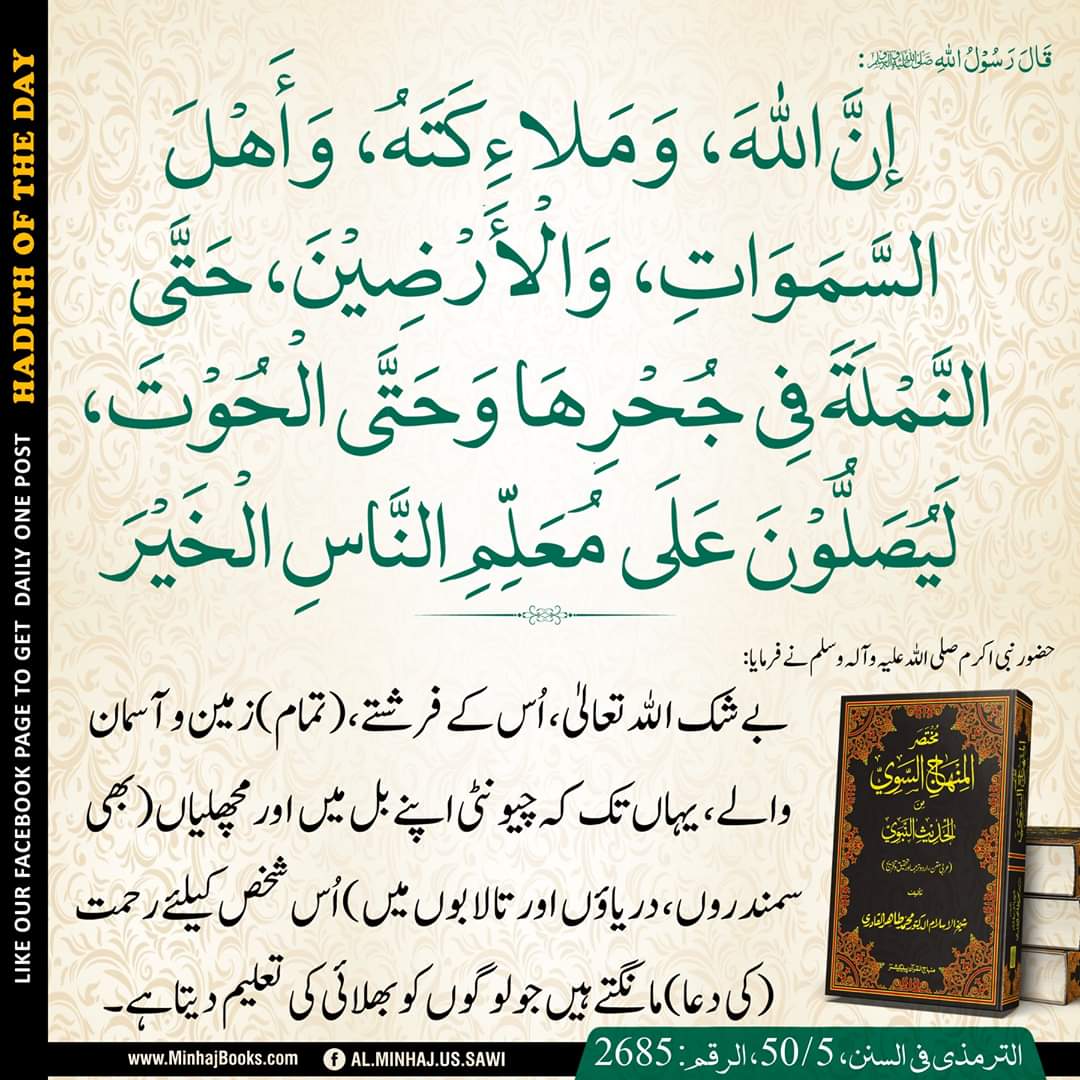 HADITH OF THE DAY
LIKE OUR FACEBOOK PAGE TO GET DAILY ONE POST
قَالَ رَسُوْلُ اللهِ ﷺ:
إِنَّ اللهَ، وَمَلَاءِكَتَهُ، وَأَهْلَ
السَّمَوَاتِ، وَالْأَرْضِيْنَ، حَتَّى
النَّمْلَةَ فِي جُحْرِهَا وَحَتَّى الْحُوْتَ،
لَيُصَلُّوْنَ عَلَى مُعَلِّمِ النَّاسِ الْخَيْرَ
حضور نبی اکرم صلی اللہ علیہ وآلہ وسلم نے فرمایا:
بے شک اللہ تعالیٰ، اُس کے فرشتے، (تمام) زمین و آسمان
والے، یہاں تک کہ چیونٹی اپنے بل میں اور مچھلیاں (بھی
سمندروں، دریاؤں اور تالابوں میں) اُس شخص کیلئے رحمت
(کی دعا) مانگتے ہیں جو لوگوں کو بھلائی کی تعلیم دیتا ہے۔
مختصر
المنهاج السوي
من
الحديث النبوي
تالیف
شیخ الاسلام الدکتور محمد طاهر القادري
منہاج القرآن پبلیکیشنز
الترمذی فی السنن، 50/5، الرقم: 2685
www.MinhajBooks.com
AL.MINHAJ.US.SAWI